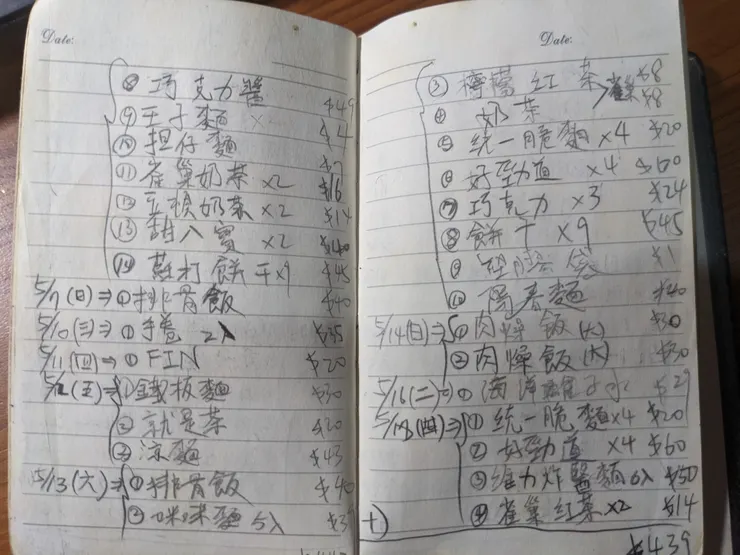 Date:
⑧ 巧克力醬 $49
⑨ 王子麵 $4
⑩ 担仔麵
⑪ 雀巢奶茶 ×2 $16
⑫ 立頓奶茶 ×2 $14
⑬ ×2
⑭ 蘇打餅干×9 $45
5/7(日)⇒① 排骨飯 $40
5/10(三)⇒① 2入 $35
5/11(四)⇒① FIN $20
5/12(五)⇒① 鐵板麵 $30
② 就是茶 $20
③ 涼麵 $43
5/13(六)⇒① 排骨飯 $40
② 味味麵 5入
Date:
③ 檸檬紅茶 $8
④ 奶茶 雀巢 $8
⑤ 統一脆麵 ×4 $20
⑥ 好勁道 ×4 $60
⑦ 巧克力 ×3 $24
⑧ 餅干 ×9 $45
⑨ 袋 $1
⑩ 陽春麵
5/14(日)⇒① 肉燥飯(大) $30
② 肉燥飯(大) $30
5/16(二)⇒① 海洋離子水 $29
5/18(四)⇒① 統一脆麵×4 $20
② 好勁道 ×4 $60
③ 維力炸醬麵 $50
④ 雀巢紅茶×2 $14
$439